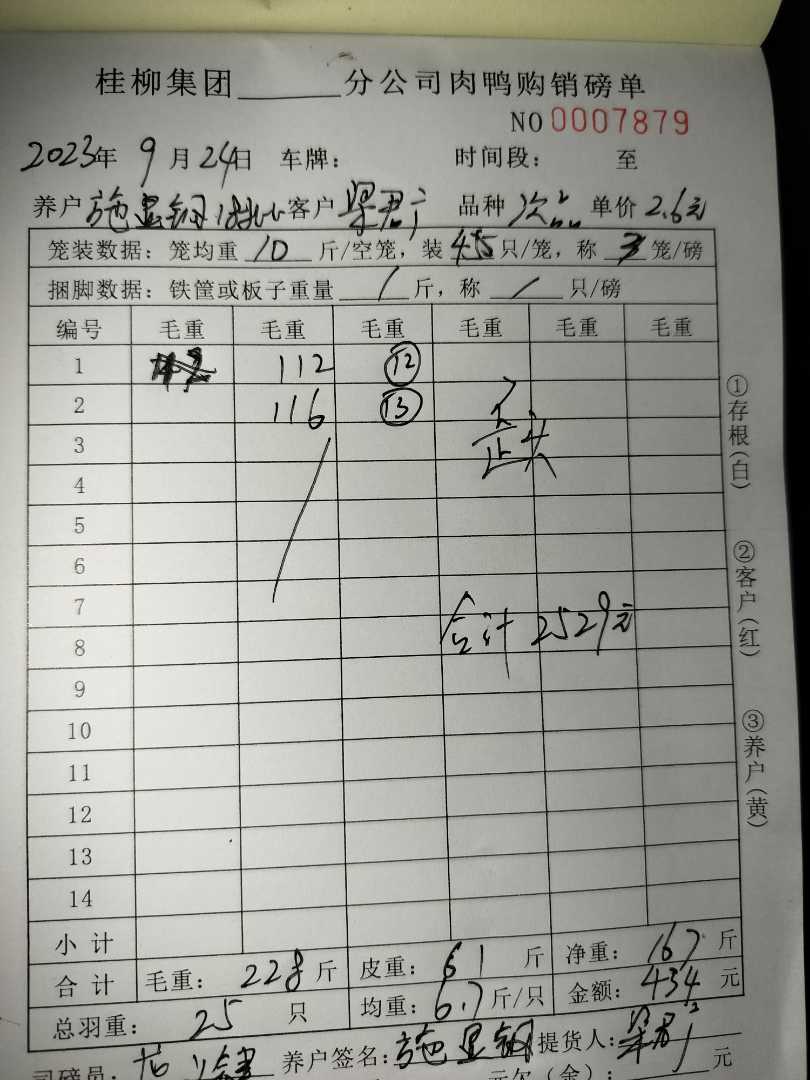 桂柳集团______分公司肉鸭购销磅单
NO 0007879
2023年 9月 24日 车牌: 时间段: 至
养户 施显钢 客户 梁君广 品种 次品 单价 2.6元
笼装数据: 笼均重 10 斤/空笼, 装 只/笼, 称 3 笼/磅
捆脚数据: 铁筐或板子重量 / 斤, 称 / 只/磅
编号 毛重 毛重 毛重 毛重 毛重 毛重
1 112 ⑫
2 116 ⑬
3
4
5
6
7
8 合计 2529元
9
10
11
12
13
14
小计
合计 毛重: 228 斤 皮重: 61 斤 净重: 167 斤
总羽重: 25 只 均重: 6.7 斤/只 金额: 434 元
司磅员: 养户签名: 施显钢 提货人: 梁君广
元欠(余): 元
①存根(白)
②客户(红)
③养户(黄)